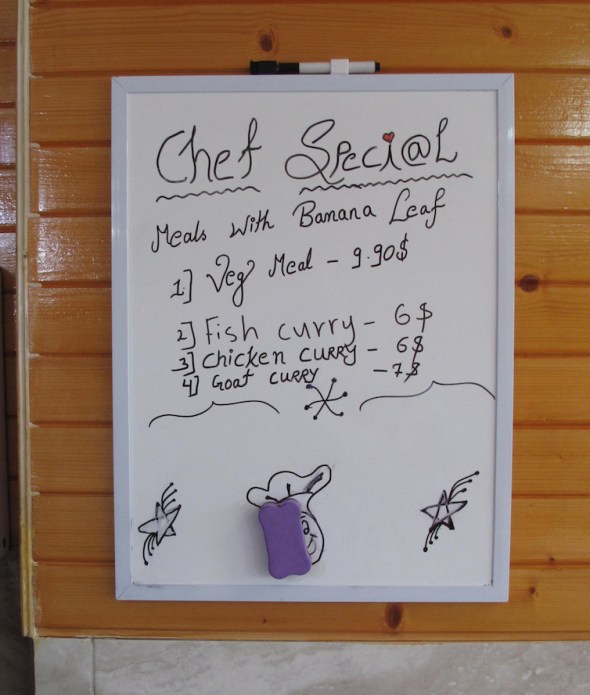 Chef Speci@L
Meals with Banana Leaf
1] Veg Meal - 9.90$
2] Fish curry - 6$
3] Chicken curry - 6$
4] Goat curry - 7$